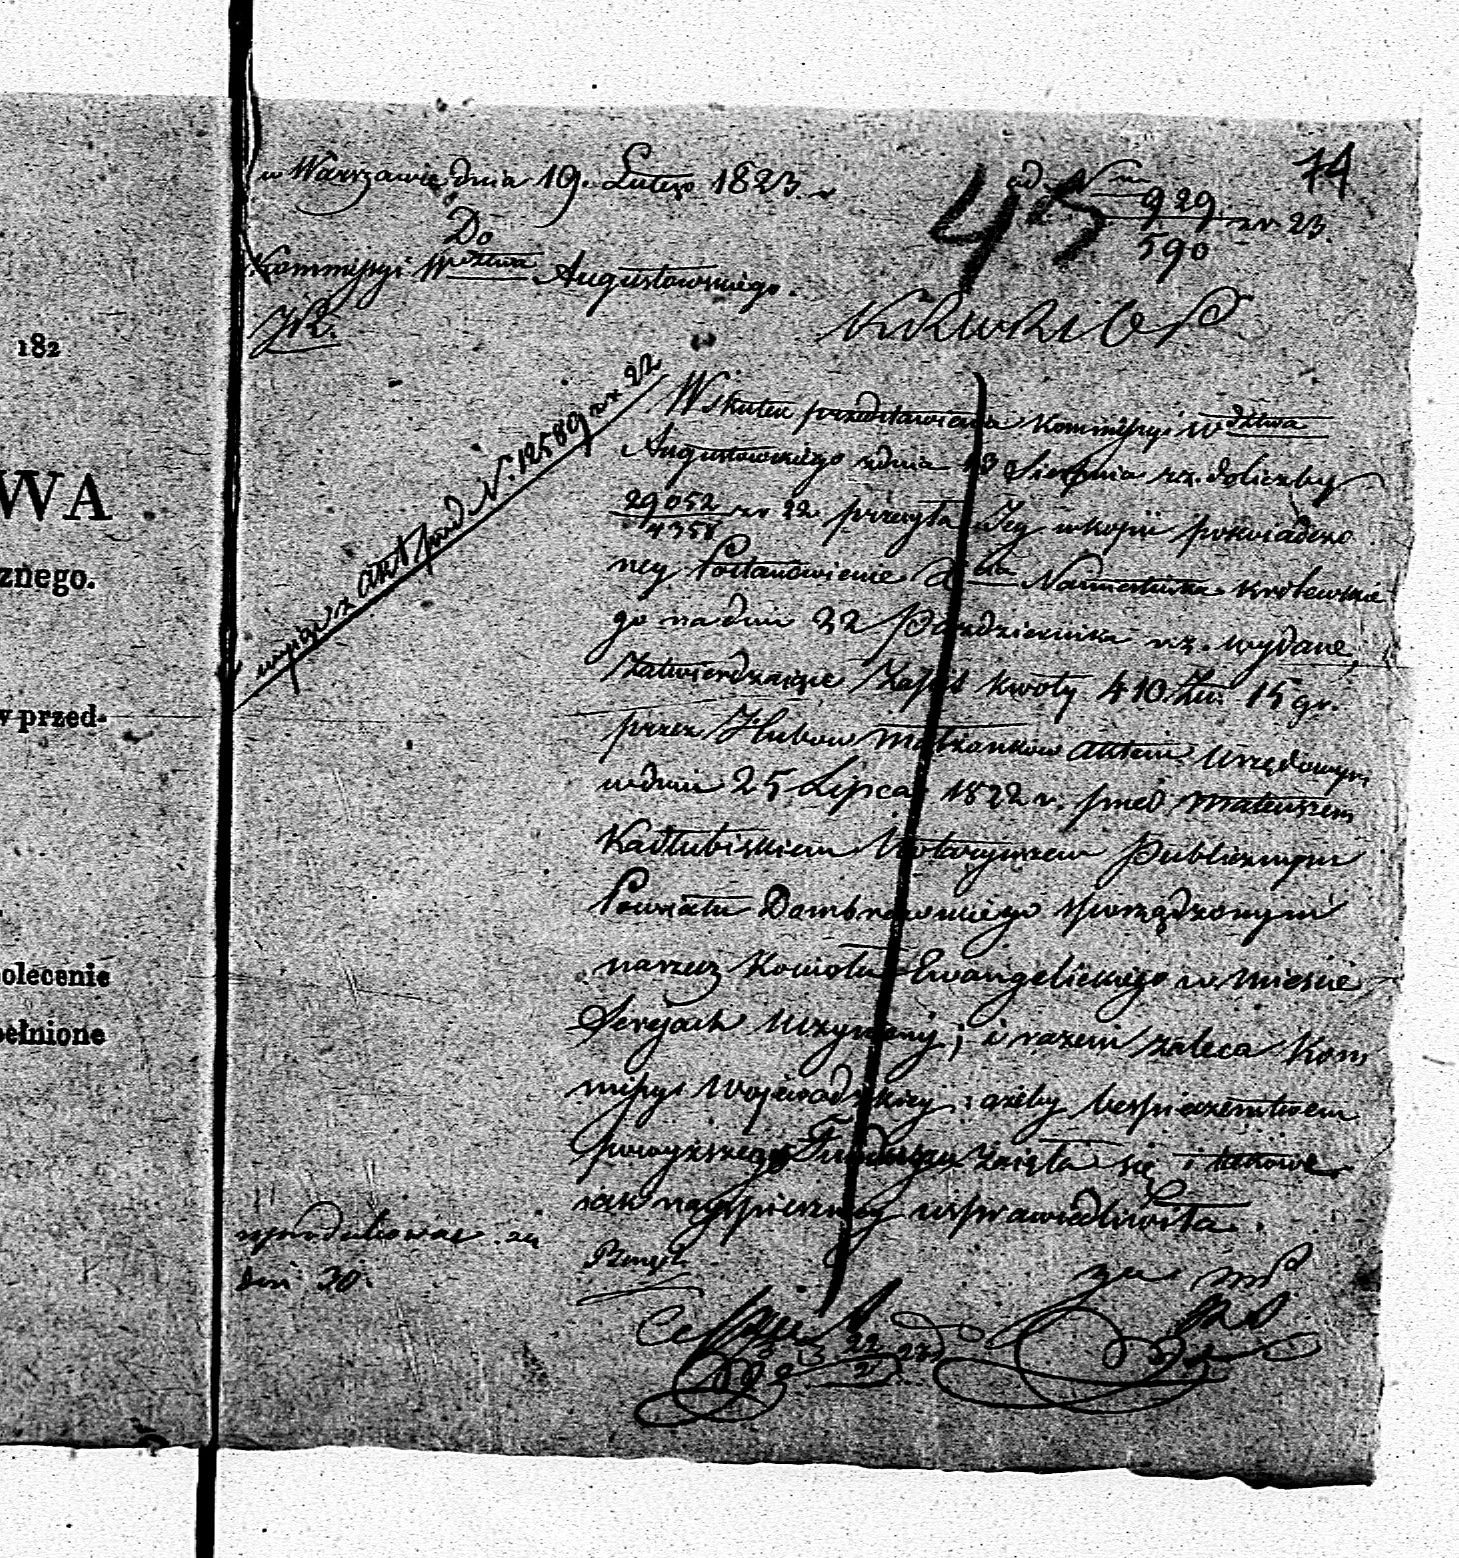 182
WA
znego.
w przed-
polecenie
pełnione
w Warszawie dnia 19. Lutego 1823. r
ad Nrm
929
590
zr. 23.
74
45
Do
Kommissyi Wdztwa Augustowskiego.
wypis z akt pod N. 12589 zr 22
W skutku przedstawienia Kommissyi Wdztwa
Augustowskiego z dnia 13 Sierpnia r.z. do liczby
29052
4358
zr 22 przesyła Jey w kopii poswiadczo
ney Postanowienie Namiestnika Krolewskie
go na dniu 22 Pazdziernika r.z. wydane,
Zatwierdzaiące Zapis kwoty 410 Złł. 15 gr.
przez Hubow Małżonkow aktem Urzędowym
w dniu 25 Lipca 1822 r. przed Mateuszem
Kadłubiskiem Notaryuszem Publicznym
Powiatu Dambrowskiego sporządzonym
na rzecz Kosciołu Ewangelickiego w miescie
Sereiach uczyniony; i razem zaleca Kom
missyi Wojewodzkiey, ażeby bespieczenstwem
powyższego Funduszu zaięła się i takowe
iak nayspieszniey usprawiedliwiła.
reprodukować za
dni 30.